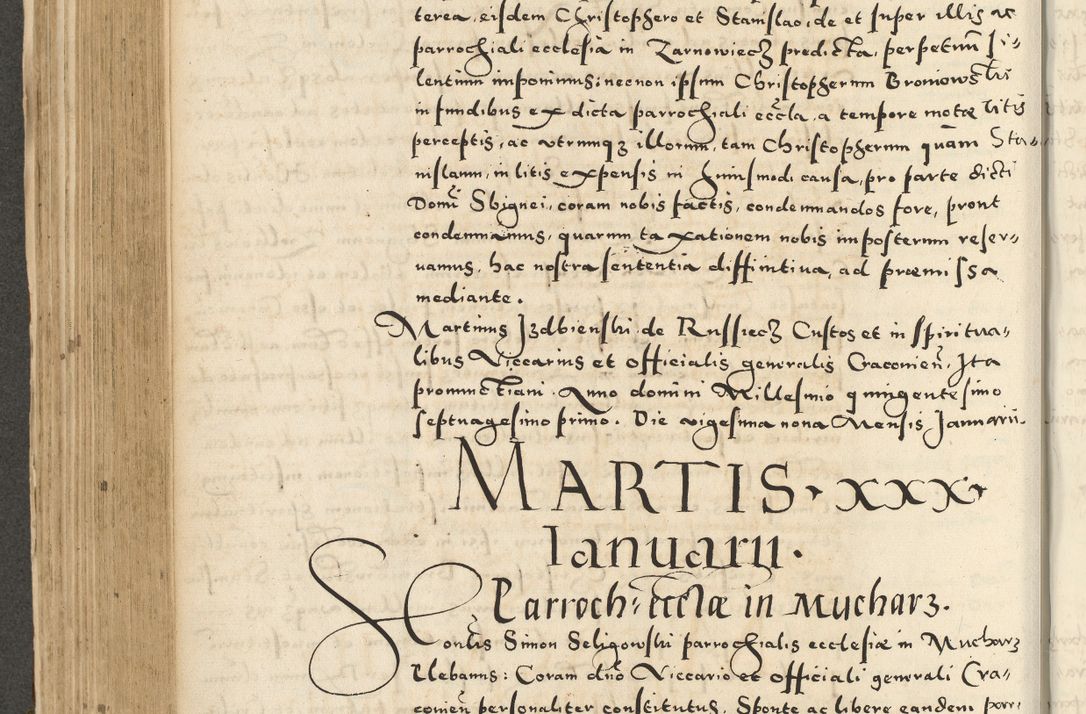 terea, eisdem Christophero et Stanislao, de et super illis ac
parrochiali ecclesia in Zarnowiecz predicta, perpetuū si-
lentium imponimus: necnon ipsum Christopherum Broniowski
in fundibus ex dicta parrochiali eccla, a tempore motæ litis
perceptis, ac utrumq3 illorum, tam Christopherum quàm Sta-
nislaum, in litis expensis in huiusmodi causa, pro parte dicti
Domi Sbignei, coram nobis factis, condemnandos fore, prout
condemnamus, quarum taxationem nobis imposterum reser-
uamus, hac nostra sententia diffinitiua, ad præmissa
mediante.
Martinus Izdbienski de Russiecz Custos et in spiritua-
libus Viccarius et officialis generalis Cracouien̄. Ita
pronunctiaui. Anno domini Millesimo quingentesimo
septuagesimo primo. Die vigesima nona Mensis Januarii
MARTIS · XXX ·
Ianuarii.
Parroch: eccłæ in Mucharz.
Honlis Simon Seligowski parrochialis ecclesiæ in Mucharz
Plebanus: Coram dno Viccario et officiali generali Cra-
couien̄ personaliter constitutus, Sponte ac libere eandem parr-